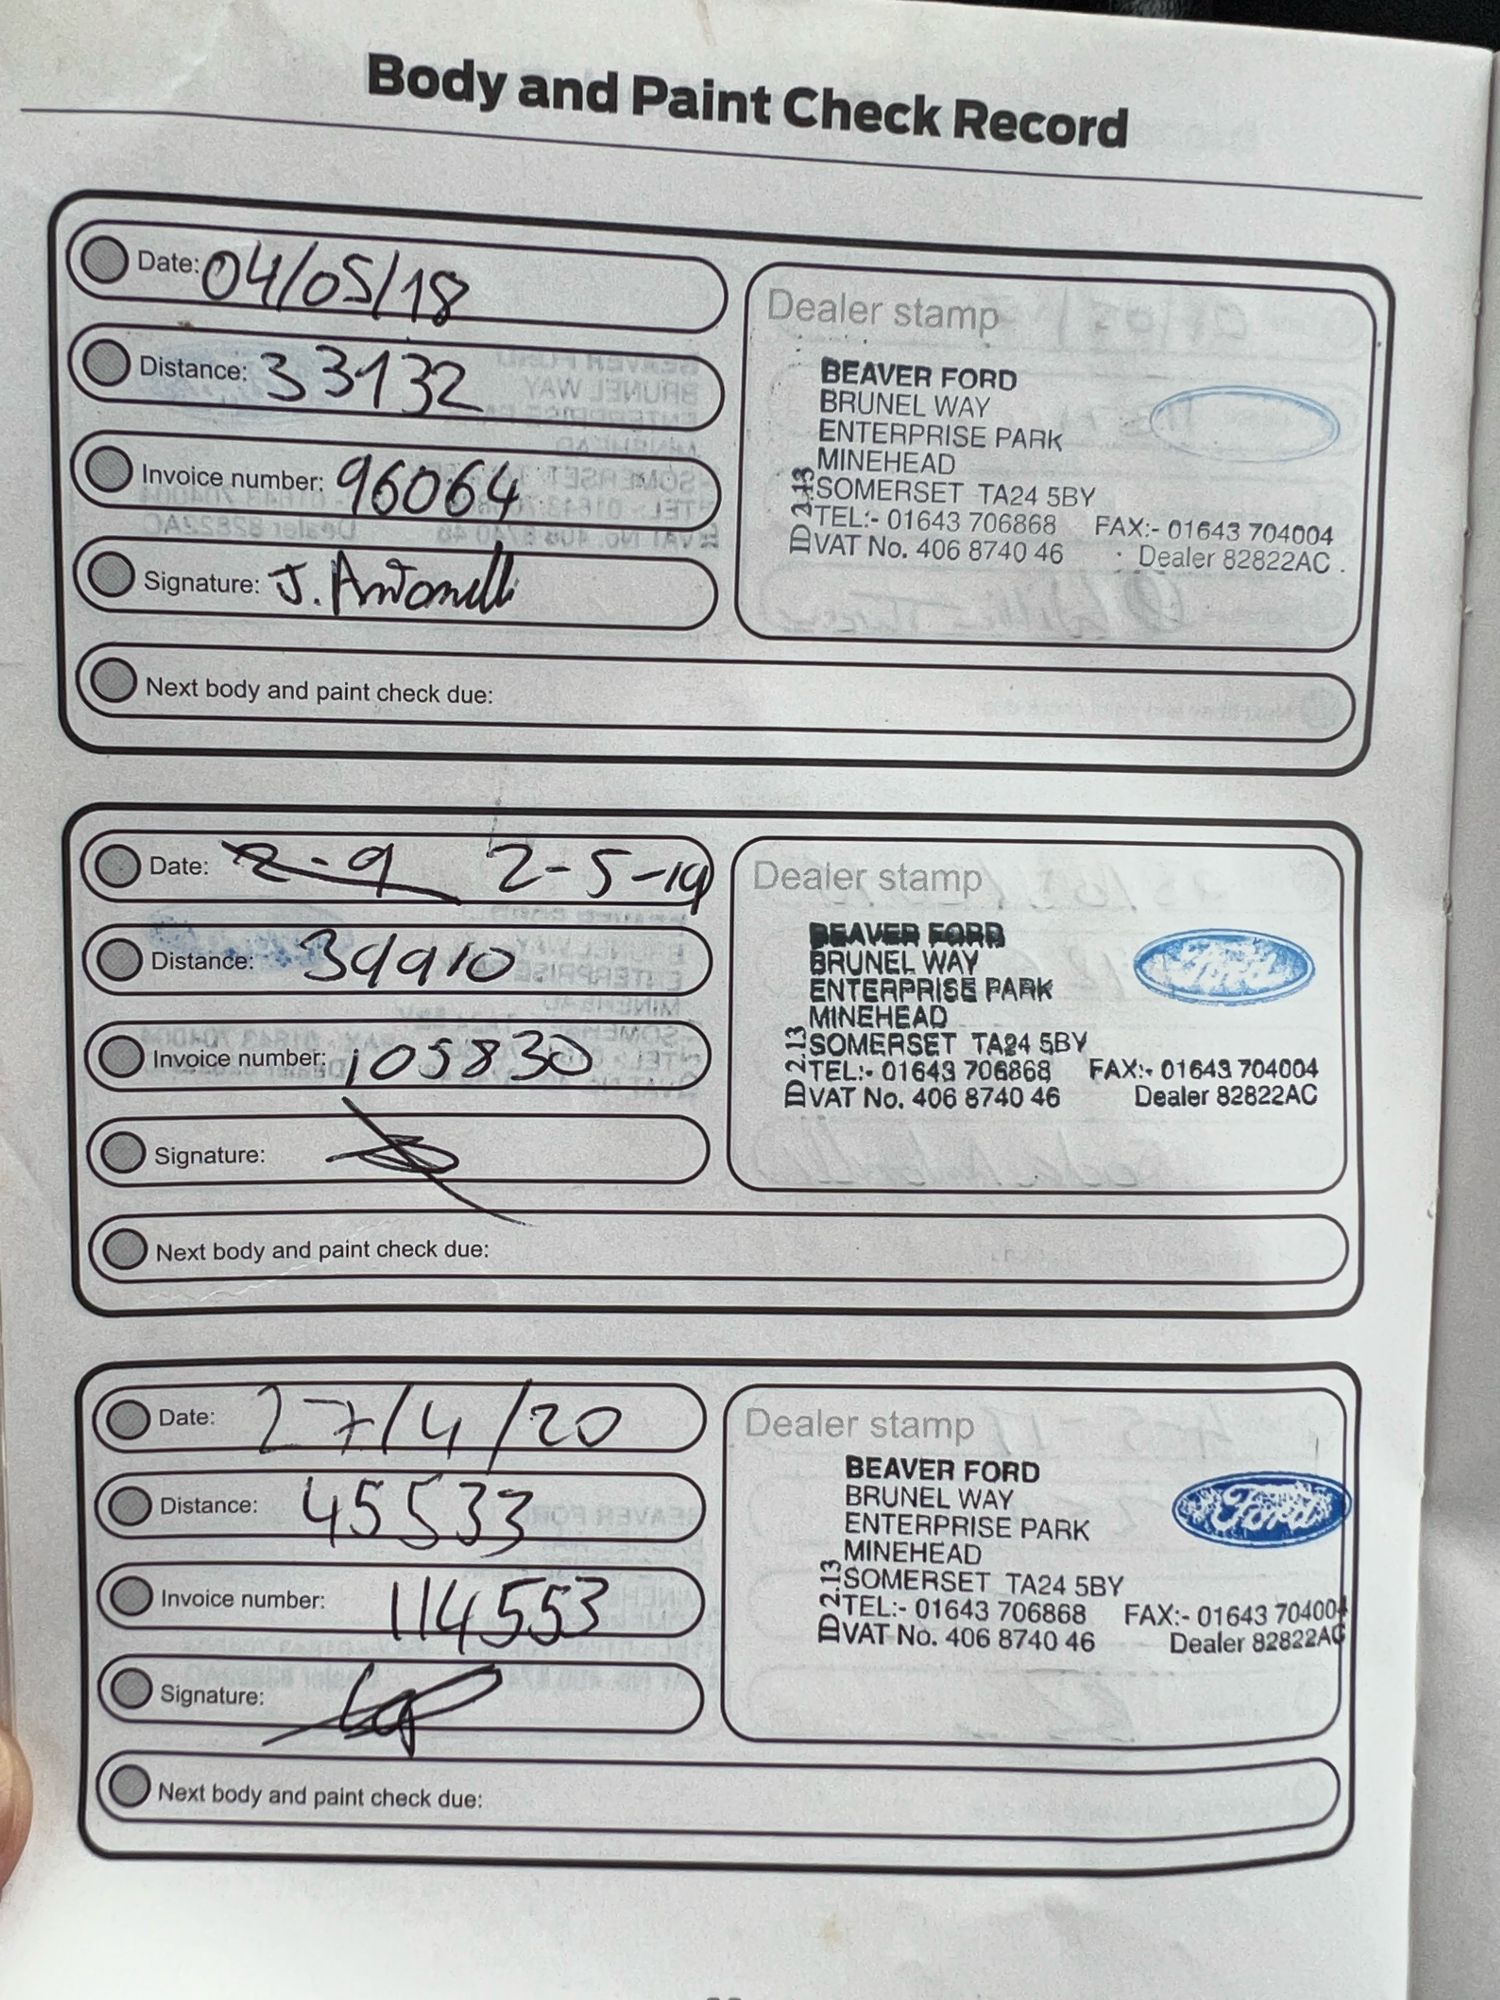 Body and Paint Check Record
Date: 04/05/18
Distance: 33132
Invoice number: 96064
Signature: J. Antonelli
Next body and paint check due:
Dealer stamp
BEAVER FORD
BRUNEL WAY
ENTERPRISE PARK
MINEHEAD
SOMERSET TA24 5BY
TEL:- 01643 706868 FAX:- 01643 704004
VAT No. 406 8740 46 Dealer 82822AC
ID 2.13
Date: 2-9 2-5-19
Distance: 39910
Invoice number: 105830
Signature:
Next body and paint check due:
Dealer stamp
BEAVER FORD
BRUNEL WAY
ENTERPRISE PARK
MINEHEAD
SOMERSET TA24 5BY
TEL:- 01643 706868 FAX:- 01643 704004
VAT No. 406 8740 46 Dealer 82822AC
ID 2.13
Ford
Date: 27/4/20
Distance: 45533
Invoice number: 114553
Signature:
Next body and paint check due:
Dealer stamp
BEAVER FORD
BRUNEL WAY
ENTERPRISE PARK
MINEHEAD
SOMERSET TA24 5BY
TEL:- 01643 706868 FAX:- 01643 704004
VAT No. 406 8740 46 Dealer 82822AC
ID 2.13
Ford